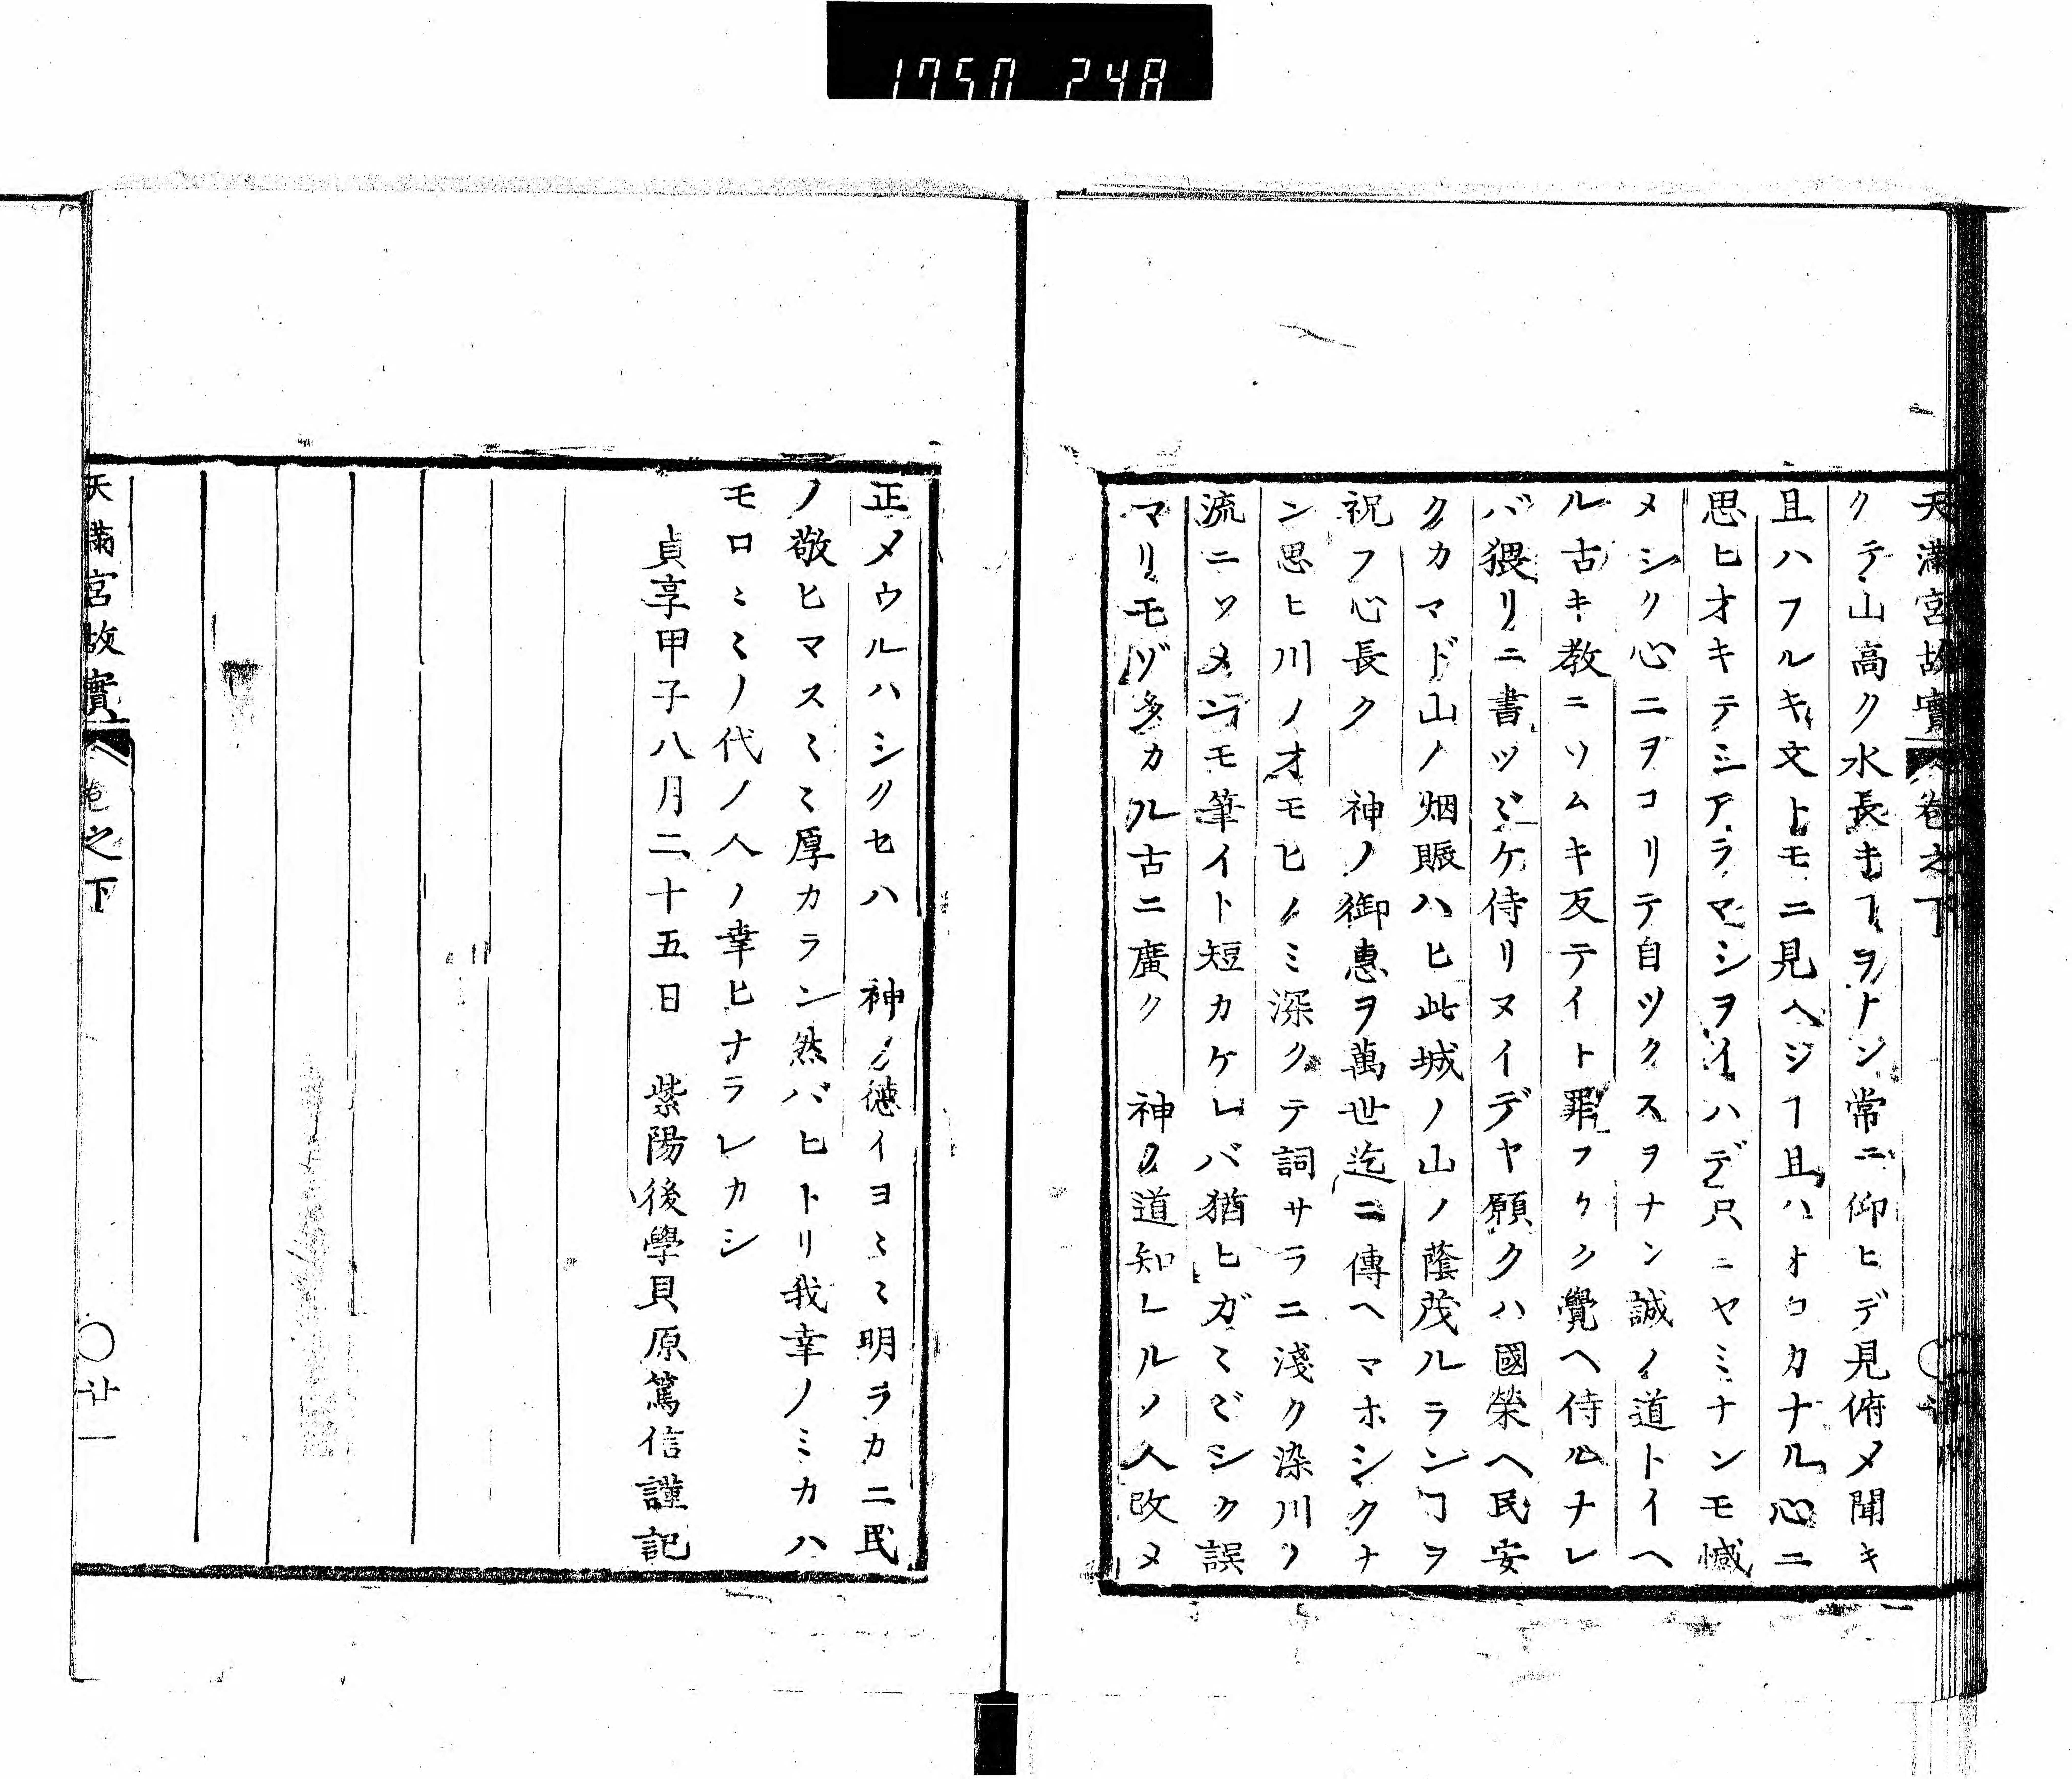 1750 248
天滿宮故實 卷之下
クテ山高ク水長キヿヲナン常ニ仰ヒデ見俯メ聞キ
且ハフルキ文トモニ見ヘシヿ且ハオロカナル心ニ
思ヒオキテシアラマシヲイハデ只ニヤミナンモ慽
メシク心ニヲコリテ自ツクスヲナン誠ノ道トイヘ
ル古キ教ニソムキ反テイト罪フカク覺ヘ侍ルナレ
バ猥リニ書ツヾケ侍リヌイデヤ願クハ國榮ヘ民安
クカマド山ノ烟賑ハヒ此城ノ山ノ蔭茂ルランヿヲ
祝フ心長ク 神ノ御惠ヲ萬世迄ニ傳ヘマホシクナ
ン思ヒ川ノオモヒノミ深クテ詞サラニ淺ク染川ノ
流ニソメンモ筆イト短カケレバ猶ヒガミミシク誤
マリモゾ多カル古ニ廣ク 神ノ道知レルノ人改メ
正メウルハシクセハ 神ノ德イヨミミ明ラカニ民
ノ敬ヒマスミミ厚カラン然バヒトリ我幸ノミカハ
モロミミノ代ノ人ノ幸ヒナラレカシ
貞享甲子八月二十五日 紫陽後學貝原篤信謹記
天滿宮故實 卷之下 〇廿一